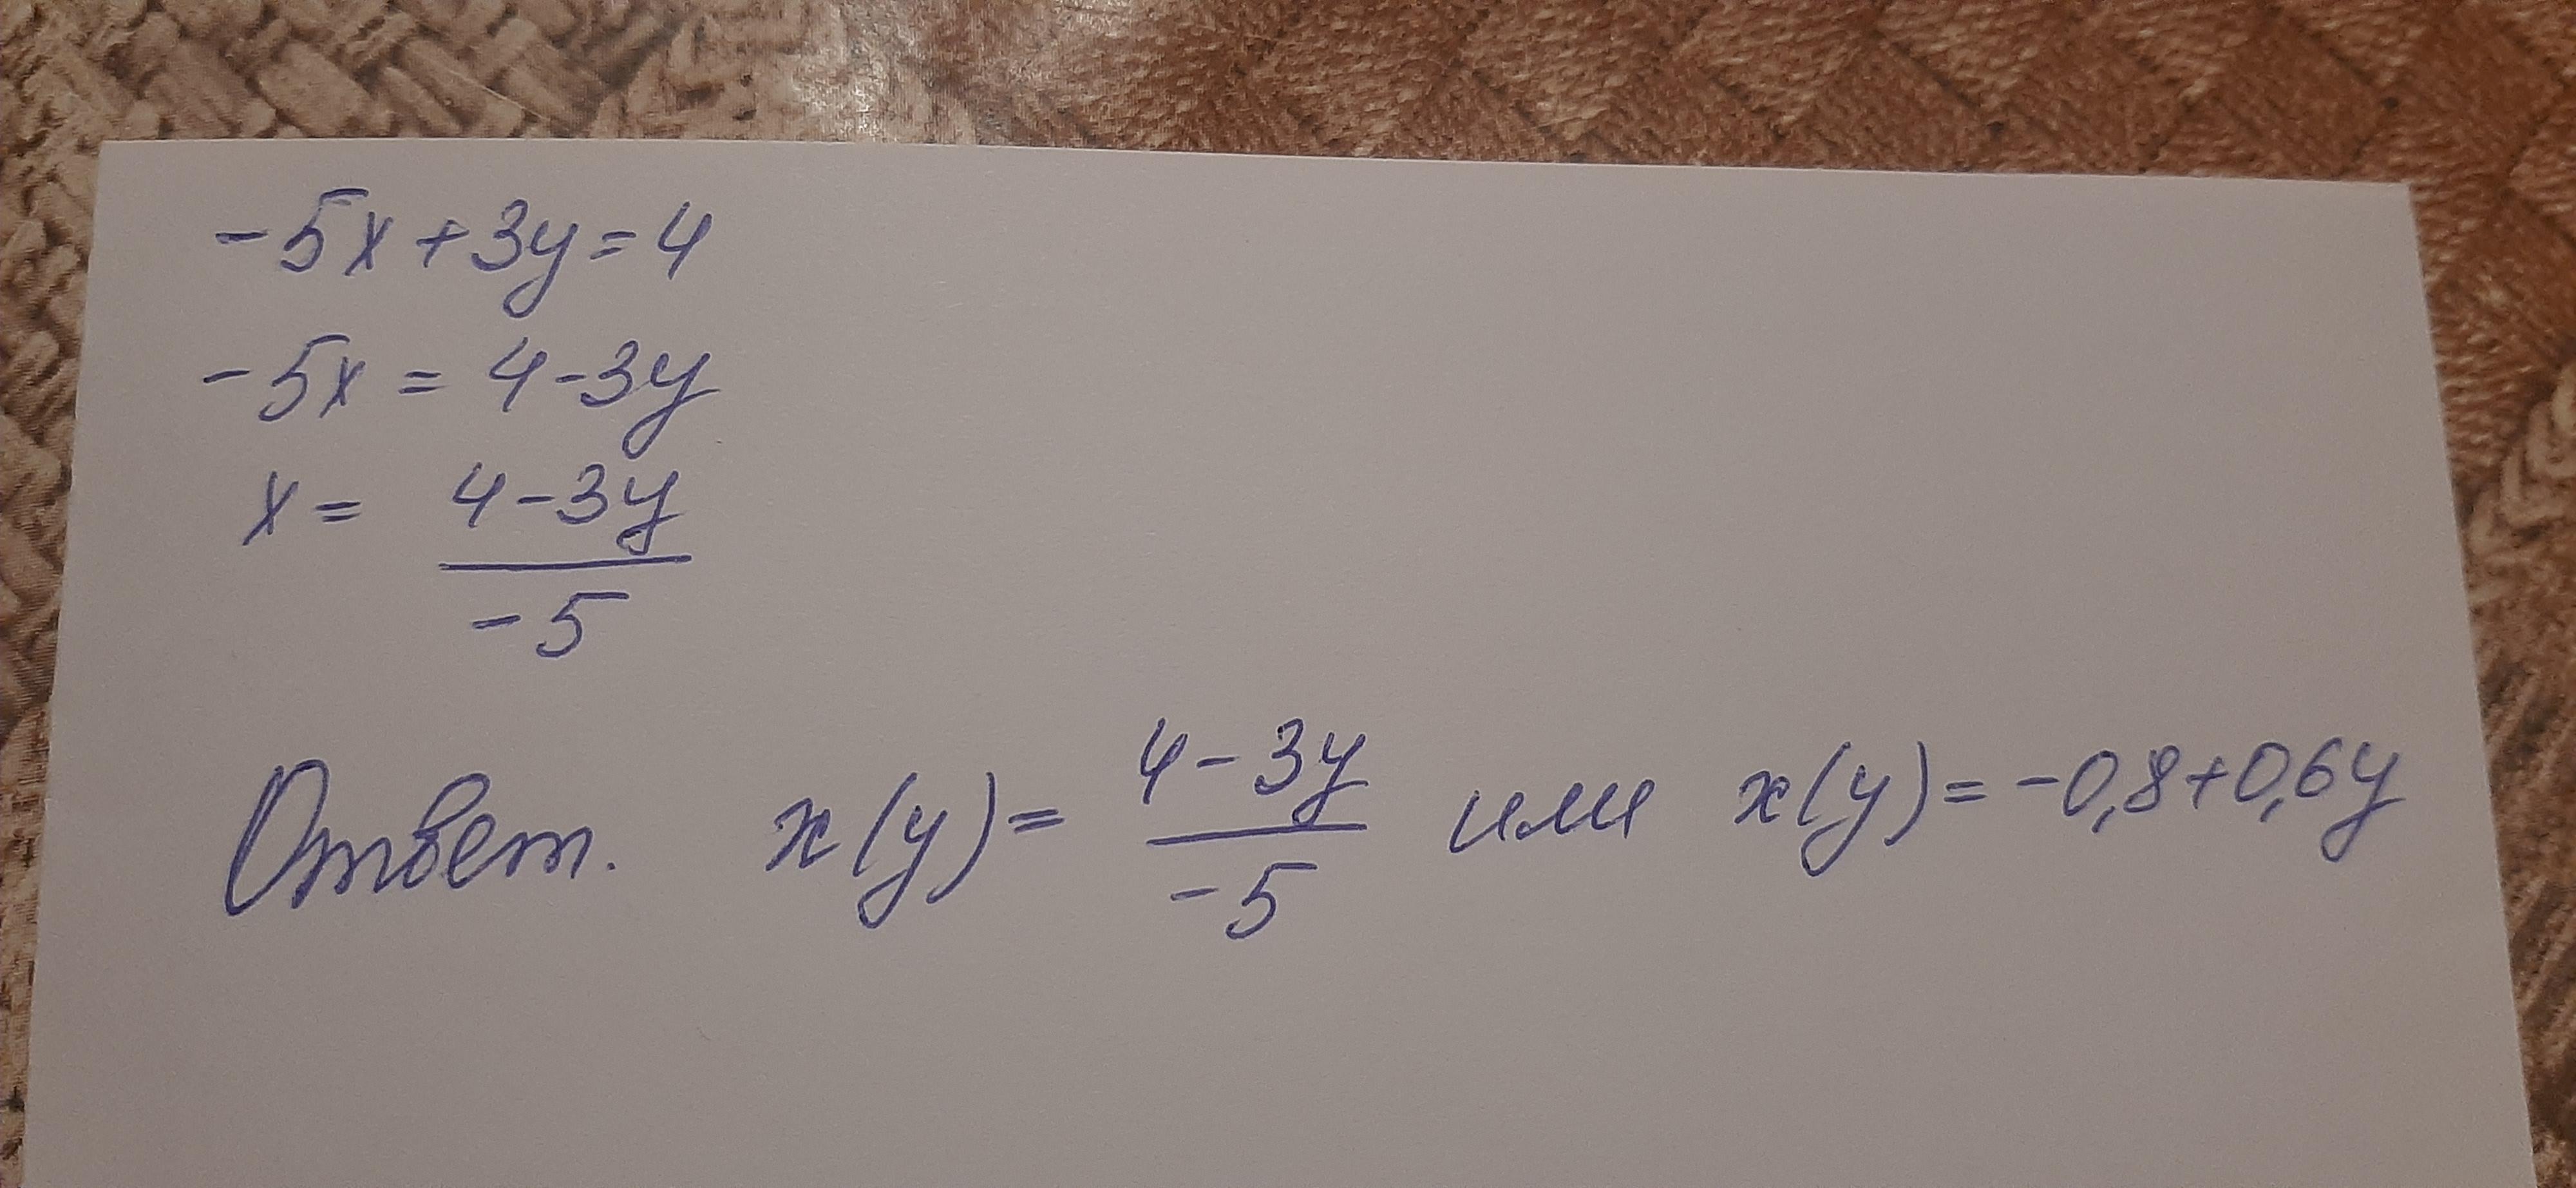 -5x+3y=4
-5x = 4-3y
x = 4-3y
-5
Ответ. x(y)= 4-3y / -5 или x(y)= -0,8+0,6y